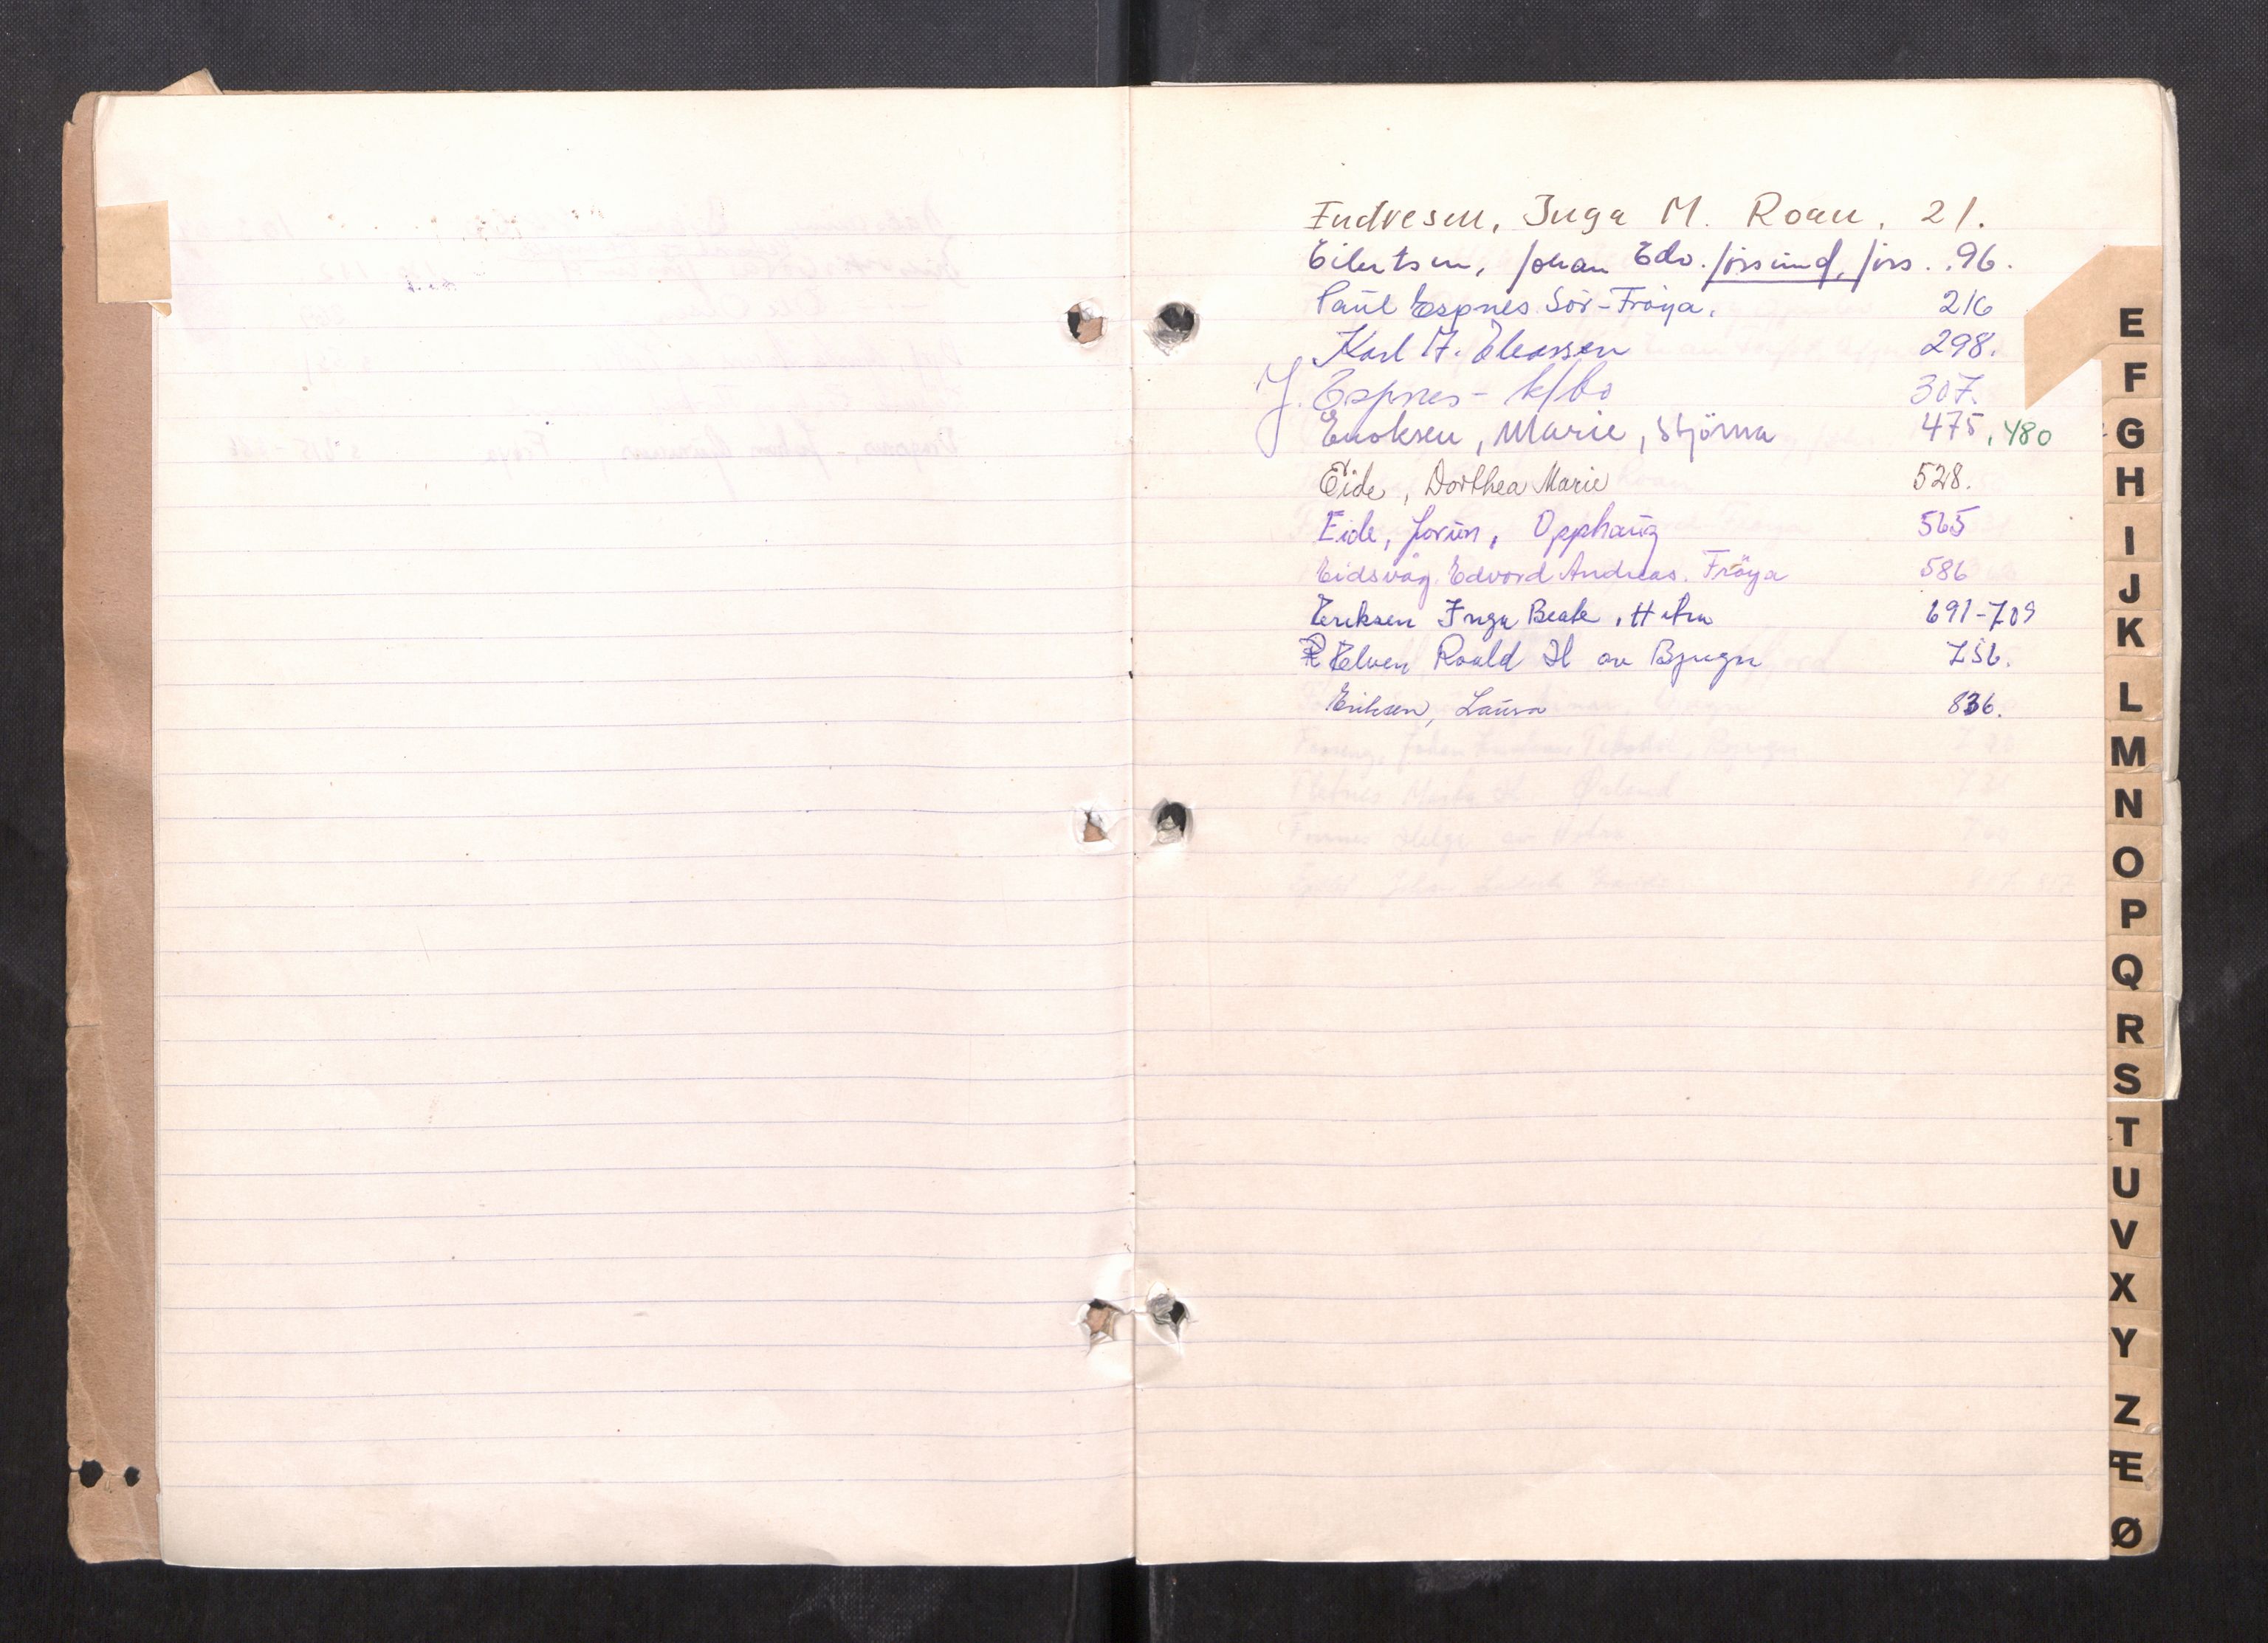 Endresen, Inga M. Roan, 21.
Eilertsen, Johan Edv. Jøssund, Jøs. . 96.
Paul Espnes Sör-Fröya. 216
Karl M. Eliassen 298.
J. Espnes - k/bo 307.
Enoksen, Marie, Stjörna 475, 480
Eide, Dorthea Marie 528.
Eide, Jorun, Opphaug 565
Eidsvåg. Edvard Andreas. Fröya 586
Eriksen Inga Beate, Hitra 691-709
Elven Roald H av Bjugn 756.
Eriksen, Laura 836.
E
F
G
H
I
J
K
L
M
N
O
P
Q
R
S
T
U
V
X
Y
Z
Æ
Ø